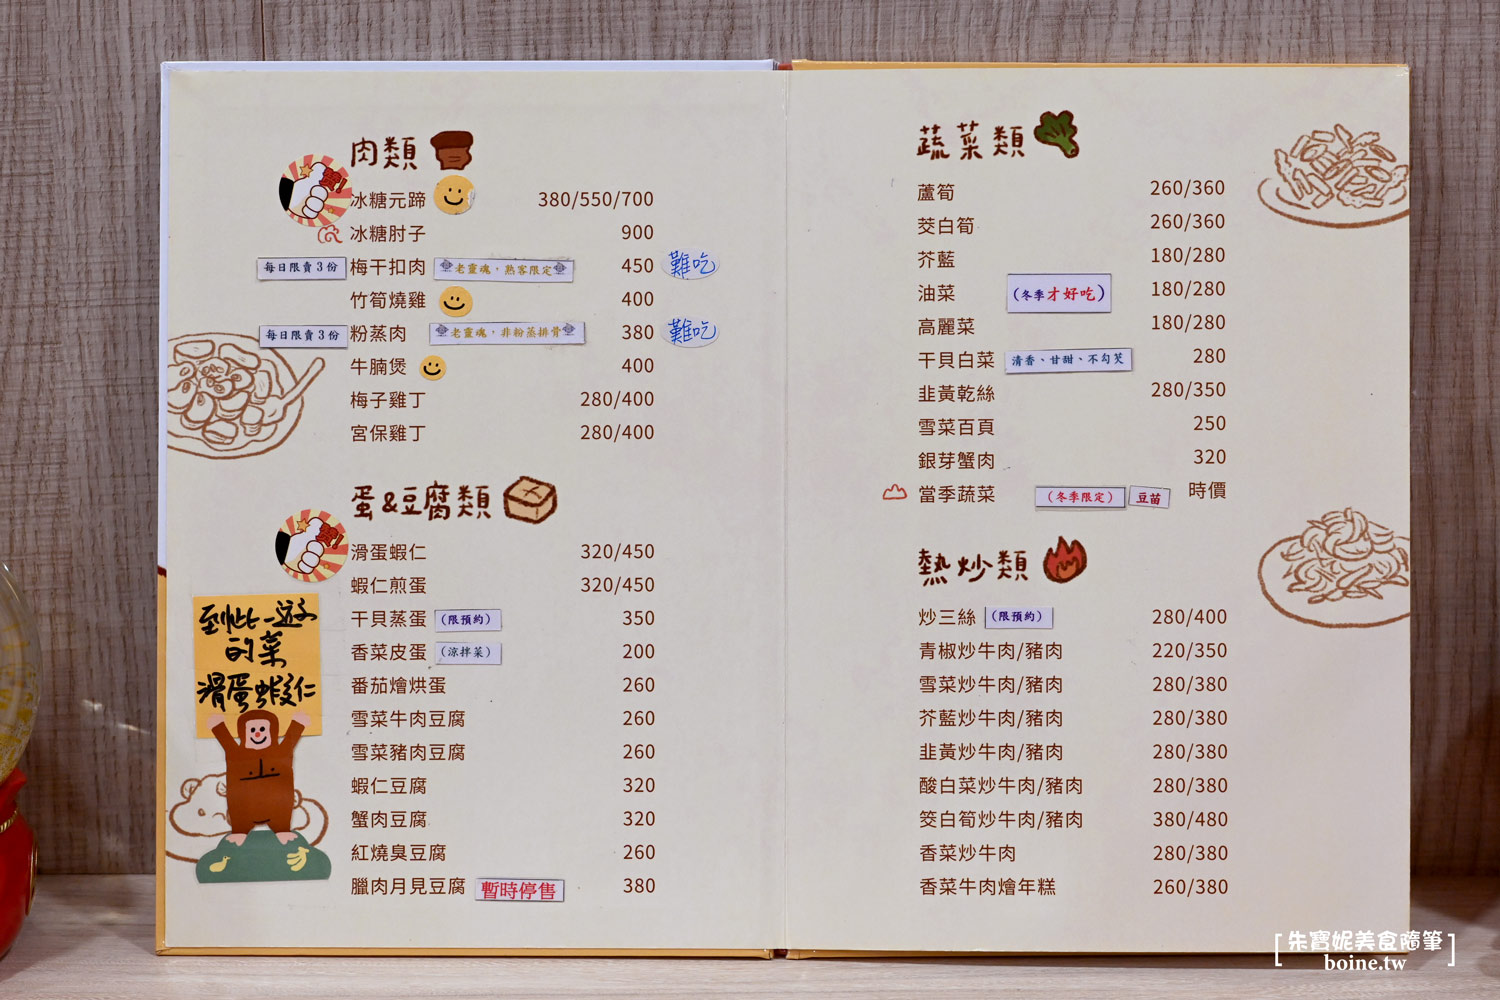 肉類
冰糖元蹄 380/550/700
冰糖肘子 900
每日限賣3份 梅干扣肉 老靈魂，熟客限定 450 難吃
竹筍燒雞 400
每日限賣3份 粉蒸肉 老靈魂，非粉蒸排骨 380 難吃
牛腩煲 400
梅子雞丁 280/400
宮保雞丁 280/400
蛋&豆腐類
滑蛋蝦仁 320/450
蝦仁煎蛋 320/450
干貝蒸蛋 (限預約) 350
香菜皮蛋 (涼拌菜) 200
番茄燴烘蛋 260
雪菜牛肉豆腐 260
雪菜豬肉豆腐 260
蝦仁豆腐 320
蟹肉豆腐 320
紅燒臭豆腐 260
臘肉月見豆腐 暫時停售 380
到此一遊
的菜
滑蛋蝦仁
蔬菜類
蘆筍 260/360
茭白筍 260/360
芥藍 180/280
油菜 (冬季才好吃) 180/280
高麗菜 180/280
干貝白菜 清香、甘甜、不勾芡 280
韭黃乾絲 280/350
雪菜百頁 250
銀芽蟹肉 320
當季蔬菜 (冬季限定) 豆苗 時價
熱炒類
炒三絲 (限預約) 280/400
青椒炒牛肉/豬肉 220/350
雪菜炒牛肉/豬肉 280/380
芥藍炒牛肉/豬肉 280/380
韭黃炒牛肉/豬肉 280/380
酸白菜炒牛肉/豬肉 280/380
筊白筍炒牛肉/豬肉 380/480
香菜炒牛肉 280/380
香菜牛肉燴年糕 260/380
朱寶妮美食隨筆
boine.tw